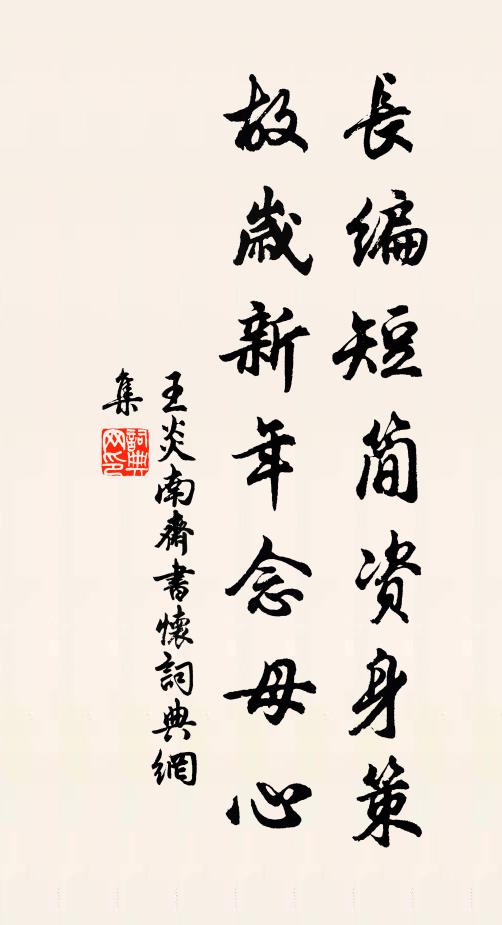 長編短简资身策
故歲新年念母心
王炎南齋書懷詞典網
集
詞典
网印